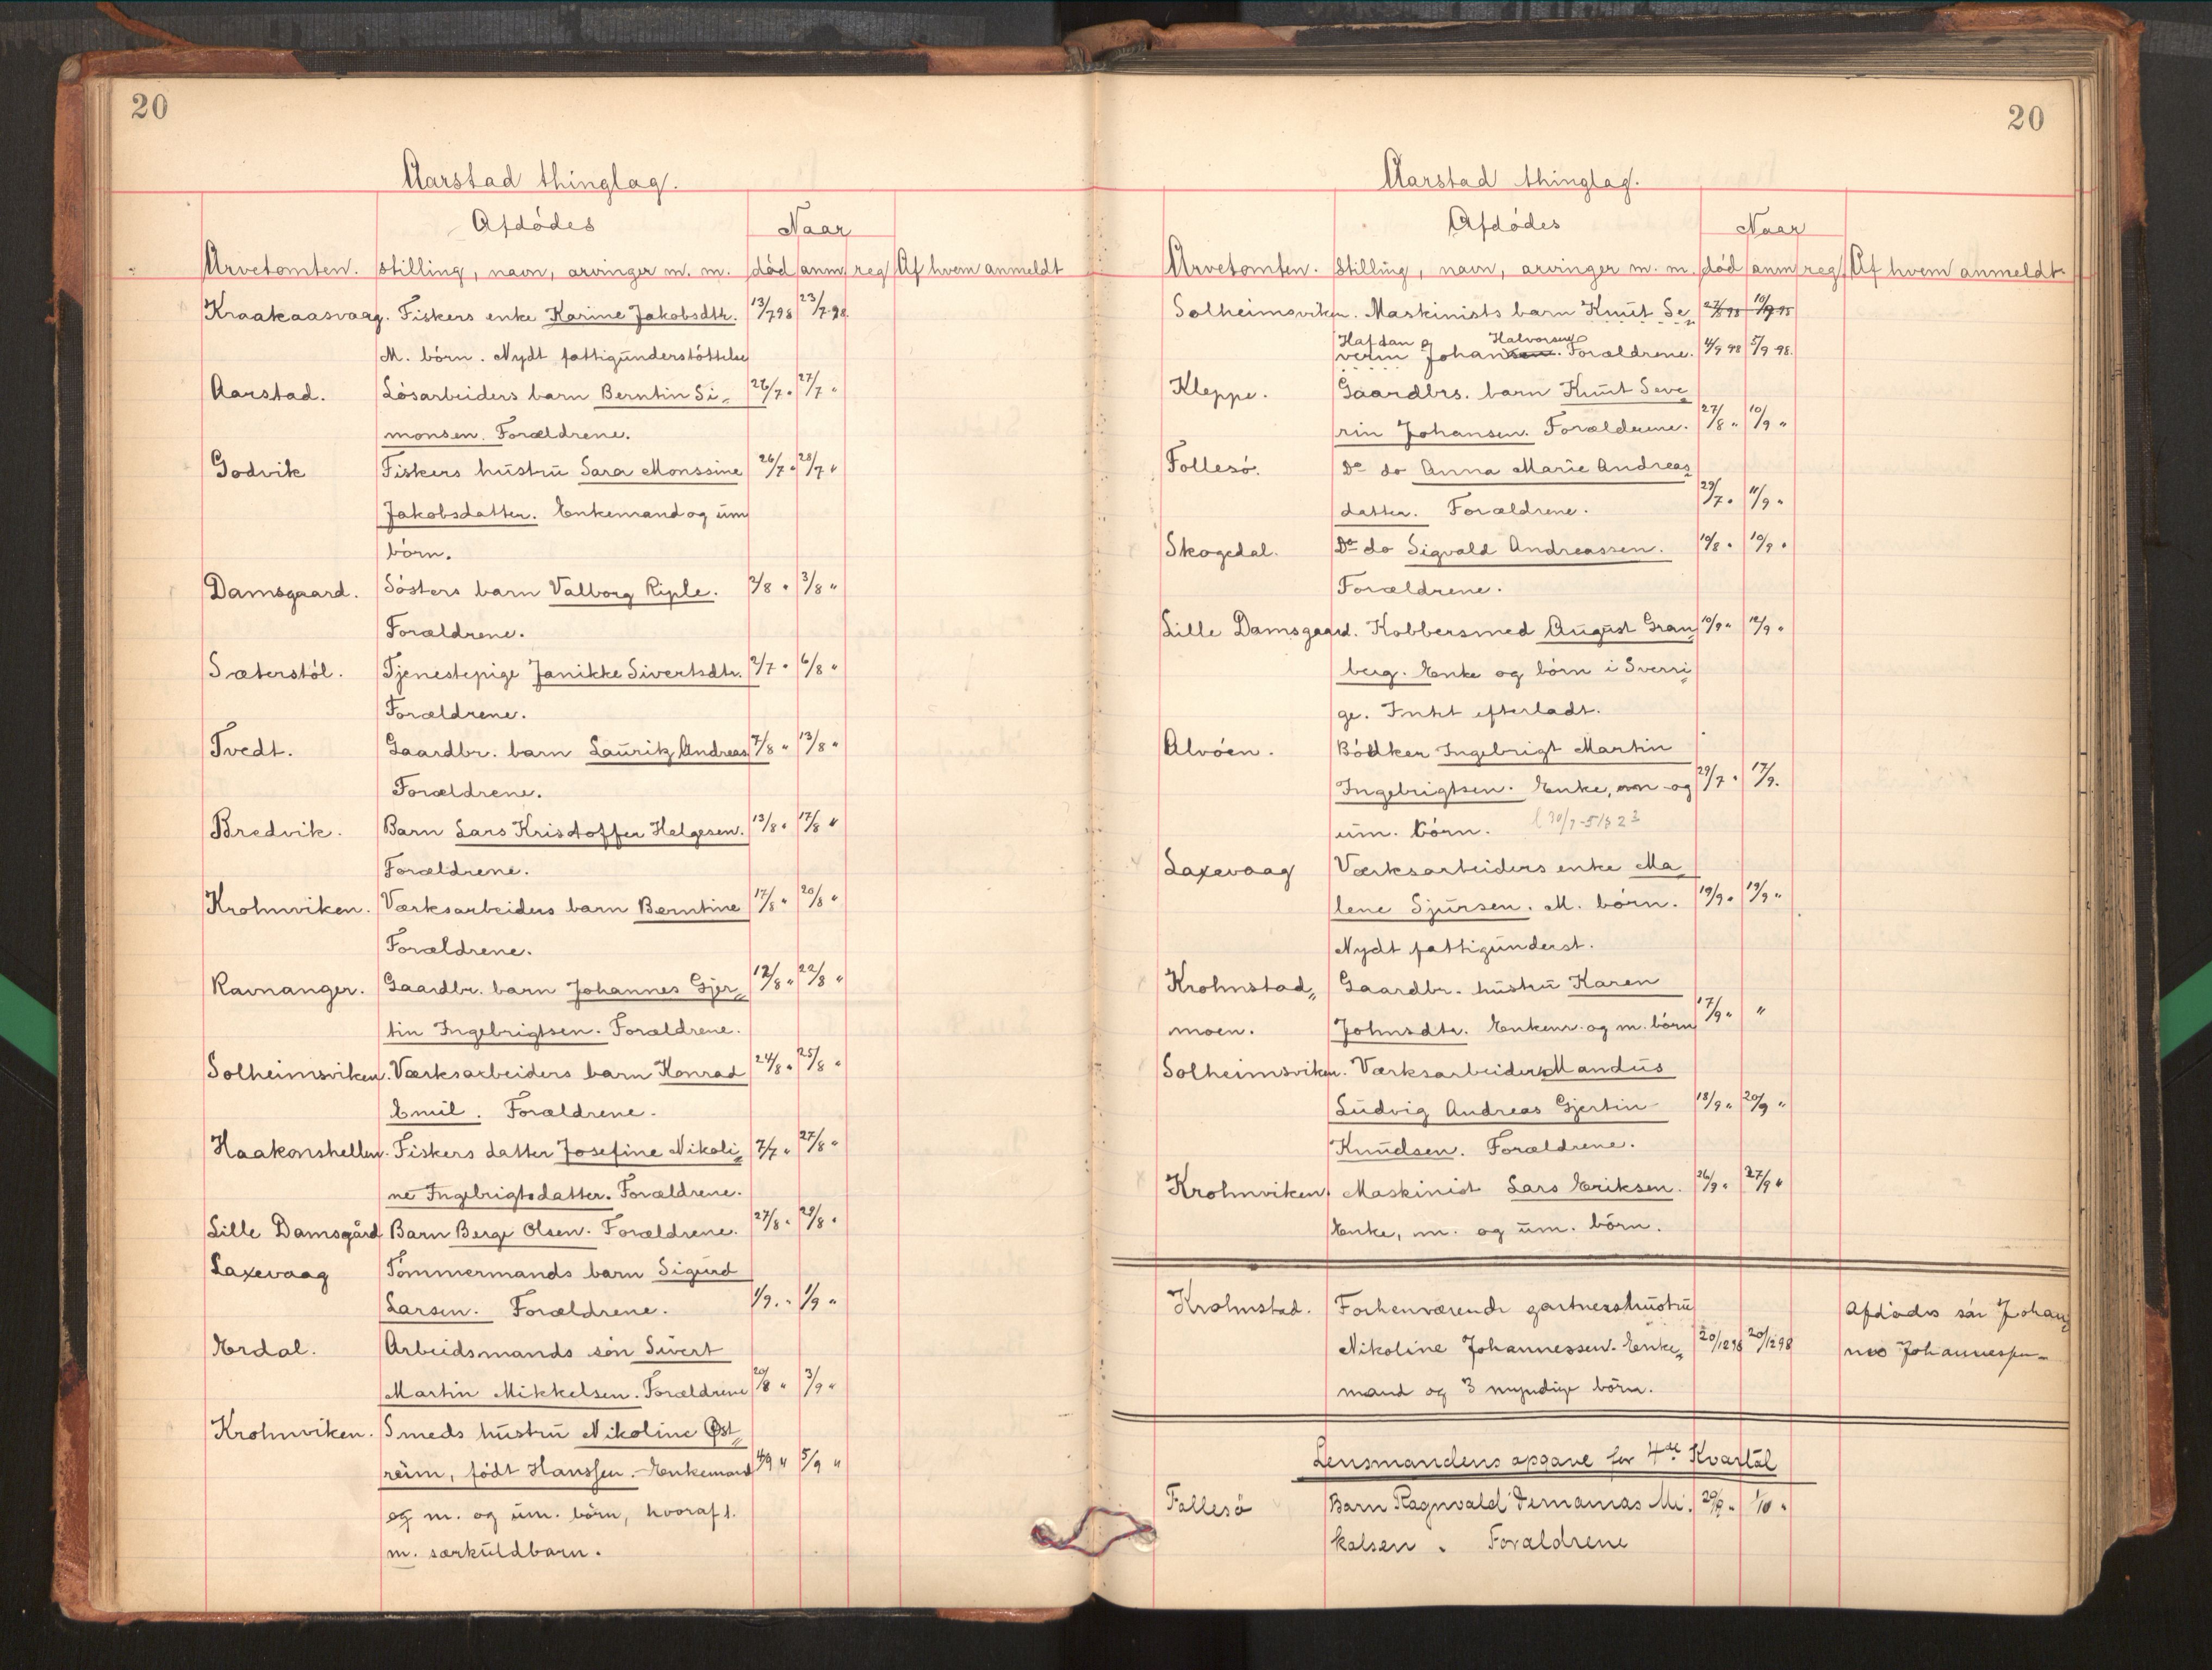 20
Aarstad thinglag.
Afdödes
Naar
Arvetomten. stilling, navn, arvinger m. m. död anm. reg Af hvem anmeldt
Kraakaasvaag. Fiskers enke Karine Jakobsdtr. 13/7 98 23/7 98
M. börn. Nydt fattigunderstöttelse
Aarstad. Lösarbeiders barn Berntin Si- 26/7 " 27/7 "
monsen. Forældrene.
Godvik Fiskers hustru Sara Monssine 26/7 " 28/7 "
Jakobsdatter. Enkemand og um
börn.
Damsgaard. Sösters barn Valborg Riple. 2/8 " 3/8 "
Forældrene.
Sæterstöl. Tjenestepige Janikke Sivertsdtr. 2/7 " 6/8 "
Forældrene.
Tvedt. Gaardbr. barn Lauritz Andreas 7/8 " 13/8 "
Forældrene.
Bredvik. Barn Lars Kristoffer Helgesen. 13/8 " 17/8 "
Forældrene.
Krohnviken. Værksarbeiders barn Berntine 17/8 " 20/8 "
Forældrene.
Ravnanger. Gaardbr. barn Johannes Gjer- 12/8 " 22/8 "
tin Ingebrigtsen. Forældrene.
Solheimsviken. Værksarbeiders barn Konrad 24/8 " 25/8 "
Emil. Forældrene.
Haakonshellen. Fiskers datter Josefine Nikoli- 7/7 " 27/8 "
ne Ingebrigtsdatter. Forældrene.
Lille Damsgård Barn Berge Olsen. Forældrene. 27/8 " 29/8 "
Laxevaag Tömmermands barn Sigurd
Larsen. Forældrene. 1/9 " 1/9 "
Erdal. Arbeidsmands sön Sivert
Martin Mikkelsen. Forældrene 20/8 " 3/9 "
Krohnviken. Smeds hustru Nikoline Øst-
reim, födt Hanssen. Enkemand 4/9 " 5/9 "
og m. og um. börn, hvoraf 1.
m. særkuldbarn.
20
Aarstad thinglag.
Afdödes
Naar
Arvetomten. Stilling, navn, arvinger m. m. död anm reg Af hvem anmeldt.
Solheimsviken. Maskinists barn Knut Se- 27/8 98 10/9 98
Hafdan g Halvorsen
verin Johansen. Forældrene. 4/9 98 5/9 98.
Kleppe. Gaardbrs. barn Knut Seve-
rin Johansen. Forældrene. 27/8 " 10/9 "
Follesö. Do do Anna Marie Andreas-
datter. Forældrene. 29/7 " 11/9 "
Skogedal. Do do Sigvald Andreassen. 10/8 " 10/9 "
Forældrene.
Lille Damsgaard. Kobbersmed August Gran- 10/9 " 12/9 "
berg. Enke og börn i Sverri-
ge. Intet efterladt.
Alvöen. Bödker Ingebrigt Martin
Ingebrigtsen. Enke, m og 29/7 " 17/9.
um. börn.
Laxevaag Værksarbeiders enke Ma-
lene Sjursen. M. börn. 19/9 " 19/9 "
Nydt fattigunderst.
Krohnstad- Gaardbr. hustru Karen
moen. Johnsdtr. Enkem. og m. börn 17/9 " "
Solheimsviken. Værksarbeider Mandus
Ludvig Andreas Gjertin 18/9 " 20/9 "
Knudsen. Forældrene.
Krohnviken. Maskinist Lars Eriksen. 26/9 " 27/9 "
Enke, m. og um. börn.
Krohnstad. Forhenværende gartnershustru Afdödes sön Johan-
Nikoline Johannessen. Enke- 20/12 98 20/12 98 nes Johannessen
mand og 3 myndige börn.
Lensmandens opgave for 4de Kvartal
Follesö Barn Ragnvald Mi. 20/9 " 1/10 "
kalsen. Forældrene